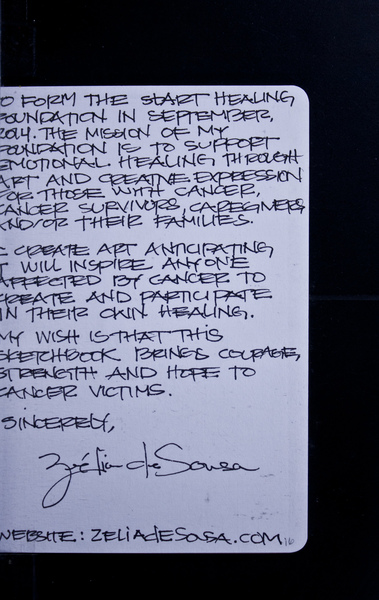 TO FORM THE START HEALING
FOUNDATION IN SEPTEMBER,
2014. THE MISSION OF MY
FOUNDATION IS TO SUPPORT
EMOTIONAL HEALING THROUGH
ART AND CREATIVE EXPRESSION
FOR THOSE WITH CANCER,
CANCER SURVIVORS, CAREGIVERS
AND/OR THEIR FAMILIES.
I CREATE ART ANTICIPATING
IT WILL INSPIRE ANYONE
AFFECTED BY CANCER TO
CREATE AND PARTICIPATE
IN THEIR OWN HEALING.
MY WISH IS THAT THIS
SKETCHBOOK BRINGS COURAGE,
STRENGTH AND HOPE TO
CANCER VICTIMS.
SINCERELY,
Zélia de Sousa
WEBSITE: ZELIADESOUSA.COM
16